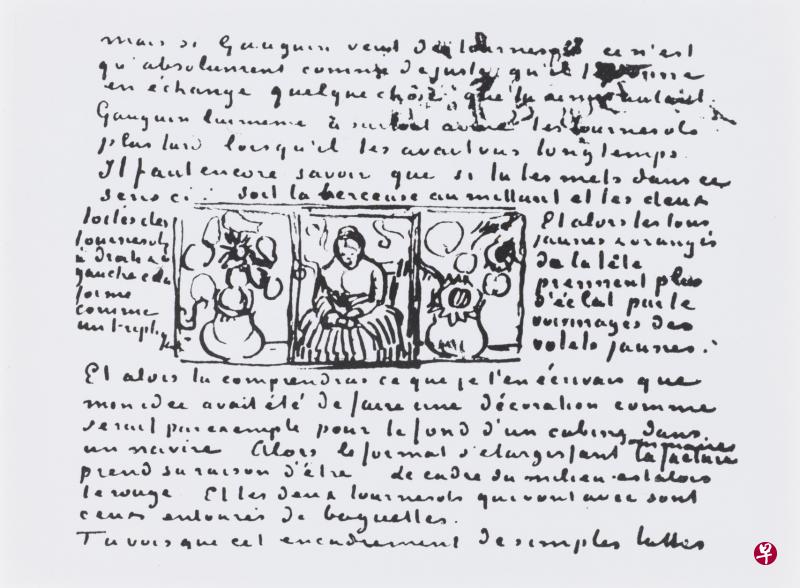 mais si Gauguin veut des tournesols ce n'est
qu'absolument comme de juste qu'il te donne
en échange quelque chose que tu aimes autant
Gauguin lui même a surtout aimé les tournesols
plus tard lorsqu'il les avait vus longtemps.
Il faut encore savoir que si tu les mets dans ce
sens ci soit la berceuse au milieu et les deux
toiles des
tournesols
à droite et à
gauche cela
forme
comme
un triptyque
Et alors les tons
jaunes & orangés
de la tête
prennent plus
d'éclat par le
voisinages des
volets jaunes.
Et alors tu comprendras ce que je t'en écrivais que
mon idée avait été de faire une décoration comme
serait par exemple pour le fond d'un cabine dans
un navire Alors le format s'élargissant la facture sommaire
prend sa raison d'être le cadre du milieu est alors
le rouge Et les deux tournesols qui vont avec sont
ceux entourés de baguettes.
Tu vois que cet encadrement de simples lattes
早